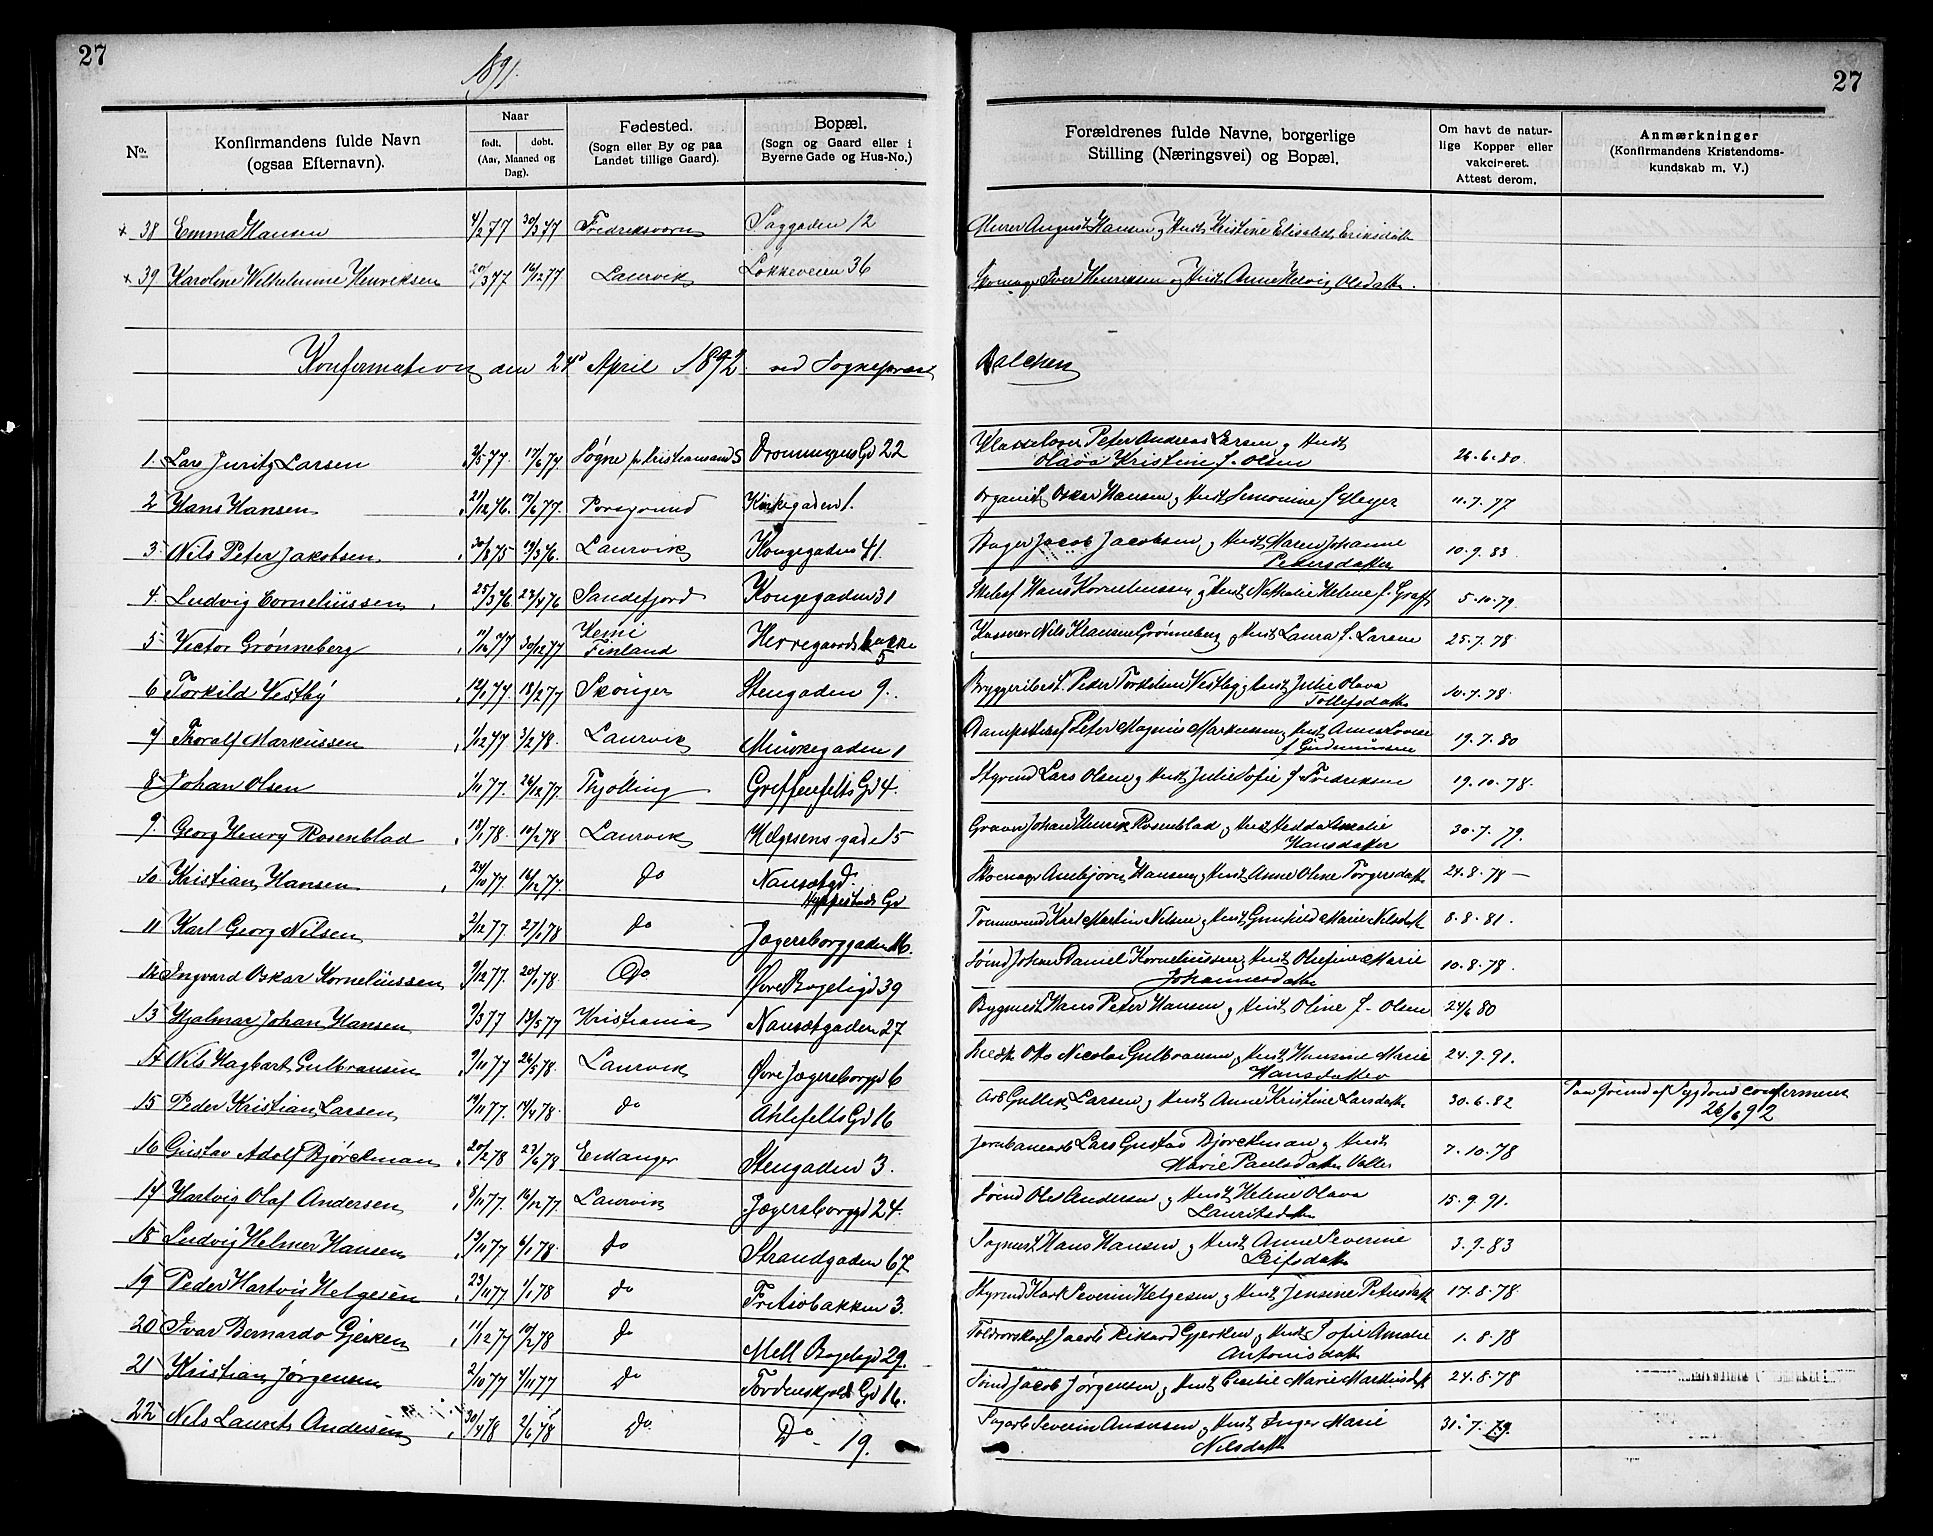 27
1891.
27
No.
Konfirmandens fulde Navn (ogsaa Efternavn).
Naar
født. døbt.
(Aar, Maaned og Dag).
Fødested.
(Sogn eller By og paa Landet tillige Gaard).
Bopæl.
(Sogn og Gaard eller i Byerne Gade og Hus-No.)
Forældrenes fulde Navne, borgerlige Stilling (Næringsvei) og Bopæl.
Om havt de naturlige Kopper eller vakcineret. Attest derom.
Anmærkninger
(Konfirmandens Kristendomskundskab m. V.)
x 38 Emma Hansen 4/2 77 30/3 77 Fredriksværn Saggaden 12 Murer August Hansen og Hust Kristine Elisabeth Eriksdatt
x 39 Karoline Wilhelmine Henriksen 20/3 77 16/12 77 Laurvik Løkkeveien 36 Skomager Iver Henriksen og Hust Anne Helvig Olsdatt.
Konfirmation den 24d April 1892. ved Sognepræst Balchen
1. Lars Juritz Larsen 3/5 77 17/6 77 Søgne pr Kristiansand S Dronningens Gd 22 Peter Andreas Larsen og Hust
Olava Kristine f. Olsen 26.6.80.
2 Hans Hansen 21/12 76. 17/6 77. Porsgrund Kirkegaden 1. Organist Oskar Hansen og Hust Simonine f Meyer 11.7.77
3. Nils Peter Jakobsen 30/8 75 19/3 76. Laurvik Kongegaden 41. Bager Jacob Jacobsen og Hust Maren Johanne
Petersdatter 10.9.83.
4. Ludvig Corneliussen 25/3 76. 23/4 76 Sandefjord Kongegaden 31 Hans Korneliussen og Hust Nathalie Helene f. Graff 5.10.79.
5 Victor Grønneberg 11/6 77 30/12 77 Kemi
Finland Herregaardsbakke
5 Kasserer Nils Klausen Grønneberg og Hust Laura f. Larsen 25.7.78
6 Torkild Vestby 12/1 77. 18/2 77 Skouger Stengaden 9. Bryggeribest. Peder Torkildsen Vestby og Hust Julie Olava
Tollefsdatt 10.7.78.
7 Thoralf Markussen 1/12 77 3/2 78. Laurvik Munkegaden 1 Peter Magnus Markussen og Hust Anne Lovise
f Gudmunsen 19.7.80
8 Johan Olsen 1/11 77. 26/12 77 Thjølling Greffenfelts Gd 4. Styrmd Lars Olsen og Hust Julie Sofie f. Fredriksen 19.10.78.
9. Georg Henry Rosenblad 13/1 78. 10/2 78 Laurvik Helgesens gade 15 Graver Johan Henrik Rosenblad og Hust Hedda Amalie
Hansdatter 30.7.79.
10 Kristian Hansen 24/10 77. 16/12 77. Do Nansetgd.
Hyppestads Gd Skomager Ambjørn Hansen og Hust Anne Oline Torgersdatt 24.8.78 –
11 Karl Georg Nilsen 2/12 77. 27/1 78 Do Jægersborggaden 16. Tømmermd Karl Martin Nilsen og Hust Gunhild Marie Nilsdatt 8.8.81.
12 Ingvard Oskar Korneliussen 9/12 77. 20/1 78 Do. Øvre Bøgeligd 39 Sømd Johan Daniel Korneliussen og Hust Olefine Marie
Johannesdatt 10.8.78.
13 Hjalmar Johan Hansen 9/3 77 13/5 77 Kristiania Nansetgaden 27 Bygmest Hans Peter Hansen og Hust Oline f. Olsen 24/6 80
14 Nils Hagbart Gulbransen 9/11 77 26/5 78. Laurvik Øvre Jægersborggd 6 Otto Nicolai Gulbransen og Hust Hansine Marie
Hansdatter 24.9.91.
15 Peder Kristian Larsen 19/11 77. 14/4 78. do Ahlefelts Gd 16 Arb Gullik Larsen og Hust Anne Kristine Larsdatt 30.6.82 Paa Grund af Sygdom confirmeret
26/6 92
16 Gustav Adolf Bjørckman 20/2 78 23/6 78 Eidanger Stengaden 3. Jernbanearb Lars Gustav Bjørckman og Hust
Marie Paulsdatter Valler 7.10.78
17 Hartvig Olaf Andersen 8/11 77. 16/12 77. Laurvik Jægersborggd 24. Sømd Ole Andersen og Hust Helene Olava
Lauritsdatt 15.9.91.
18. Ludvig Helmer Hansen 13/11 77 6/1 78. do Strandgaden 67. Sagmest Hans Hansen og Hust Anne Severine
Leifsdatt 3.9.83
19 Peder Hartvig Helgesen 23/11 77 1/1 78 do Fritsøbakken 3. Styrmd Karl Severin Helgesen og Hust Jensine Petersdatt 17.8.78
20 Ivar Bernardo Gjerken 11/12 77 10/2 78 do Mell Bøgeligd 29. Jacob Rikard Gjerken og Hust Sofie Amalie
Antonisdatt 1.8.78
21 Kristian Jørgensen 2/10 77 4/11 77 do Tordenskjolds Gd 16. Sømd Jacob Jørgensen og Hust Cecilie Marie Markusdatt 24.8.78
22 Nils Laurits Andersen 30/4 78 2/6 78 Do. Do – 19. Sagarb Severin Andersen og Hust Inger Marie
Nilsdatt 31.7.79.